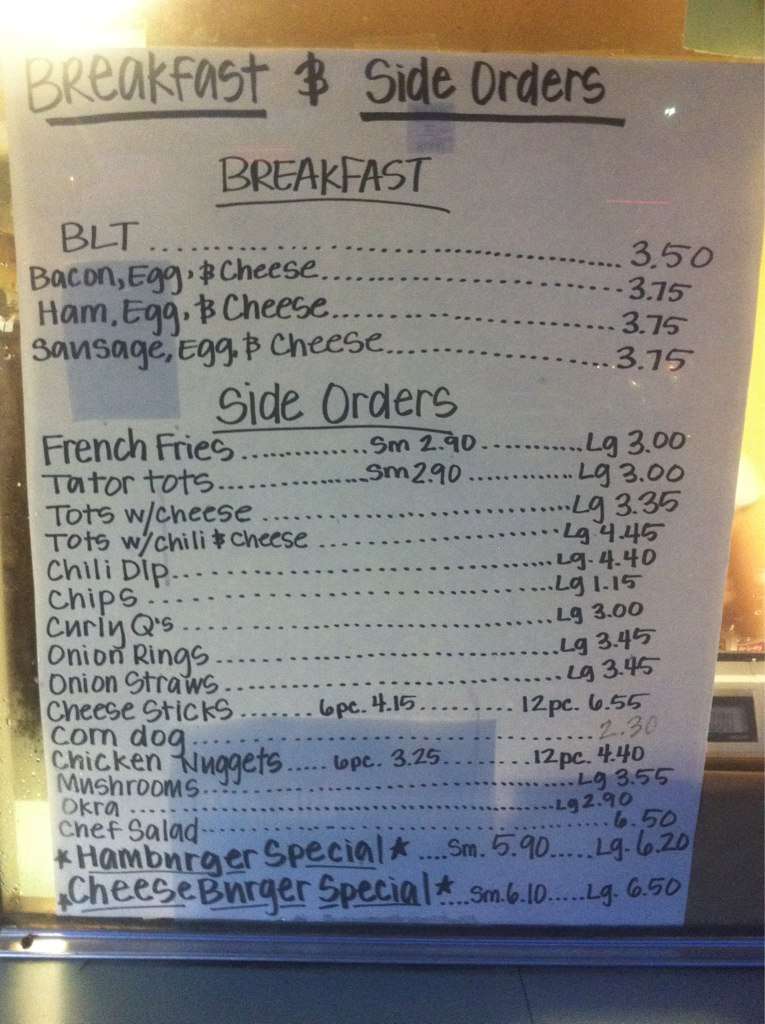 Breakfast & Side Orders
BREAKFAST
BLT ........ 3.50
Bacon, Egg, & Cheese ........ 3.75
Ham, Egg, & Cheese ........ 3.75
Sausage, Egg, & Cheese ........ 3.75
Side Orders
French Fries ........ Sm 2.90 ........ Lg 3.00
Tator tots ........ Sm 2.90 ........ Lg 3.00
Tots w/cheese ........ Lg 3.35
Tots w/chili & Cheese ........ Lg 4.45
Chili Dip ........ Lg. 4.40
Chips ........ Lg 1.15
Curly Q's ........ Lg 3.00
Onion Rings ........ Lg 3.45
Onion Straws ........ Lg 3.45
Cheese Sticks ........ 6pc. 4.15 ........ 12pc. 6.55
Corn dog ........ 2.30
Chicken Nuggets ..... 6pc. 3.25 ........ 12pc. 4.40
Mushrooms ........ Lg 3.55
Okra ........ Lg 2.90
Chef Salad ........ 6.50
*Hamburger Special* .... Sm. 5.90 ..... Lg. 6.20
*Cheese Burger Special* ... Sm. 6.10 ..... Lg. 6.50